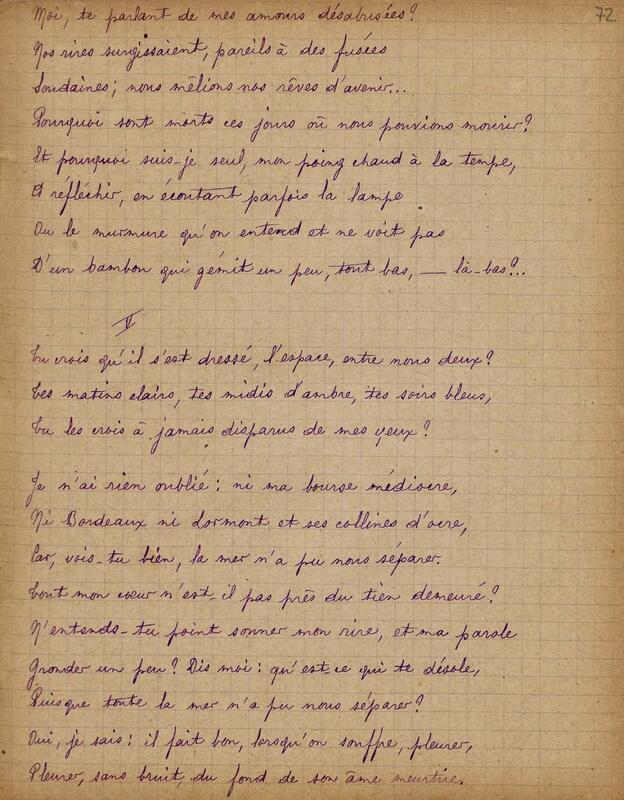 72
Moi, te parlant de mes amours désabusées?
Nos rires surgissaient, pareils à des fusées
Soudaines; nous mêlions nos rêves d'avenir...
Pourquoi sont morts ces jours où nous pouvions mourir?
Et pourquoi suis-je seul, mon poing chaud à la tempe,
Et réfléchir, en écoutant parfois la lampe
Ou le murmure qu'on entend et ne voit pas
D'un bambou qui gémit un peu, tout bas, — là-bas?..
V
Tu crois qu'il s'est dressé, l'espace, entre nous deux?
Tes matins clairs, tes midis d'ambre, tes soirs bleus,
Tu les crois à jamais disparus de mes yeux?
Je n'ai rien oublié: ni ma bourse médiocre,
Ni Bordeaux ni Lormont et ses collines d'ocre,
Car, vois-tu bien, la mer n'a pu nous séparer.
Tout mon cœur n'est-il pas près du tien demeuré?
N'entends-tu point sonner mon rire, et ma parole
Gronder un peu? Dis moi: qu'est-ce qui te désole,
Puisque toute la mer n'a pu nous séparer?
Oui, je sais: il fait bon, lorsqu'on souffre, pleurer,
Pleurer, sans bruit, du fond de son âme meurtrie.